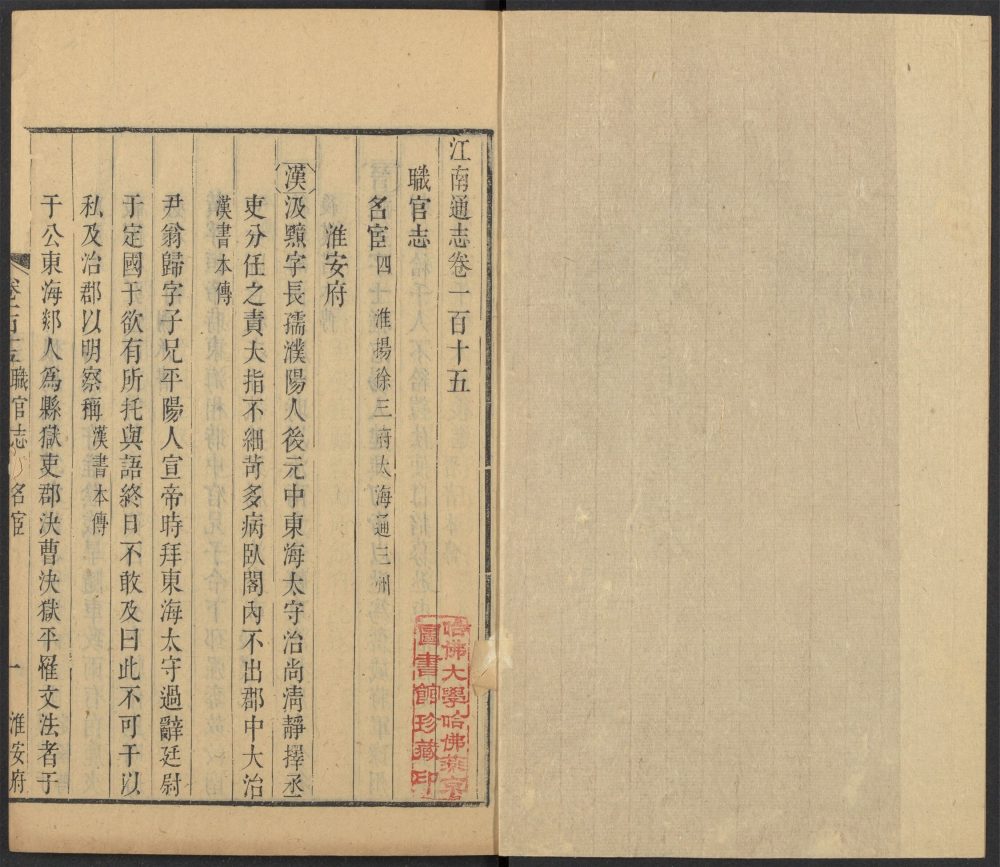 江南通志卷一百十五
職官志
名宦四 淮揚徐三府太海通三州
淮安府
漢 汲黯字長孺濮陽人後元中東海太守治尚淸靜擇丞
吏分任之責大指不細苛多病臥閣內不出郡中大治
漢書本傳
尹翁歸字子兄平陽人宣帝時拜東海太守過辭廷尉
于定國于欲有所托與語終日不敢及曰此不可干以
私及治郡以明察稱 漢書本傳
于公東海郯人爲縣獄吏郡決曹決獄平罹文法者于
職官志 名宦 一 淮安府
哈佛大學哈佛燕京
圖書館珍藏印